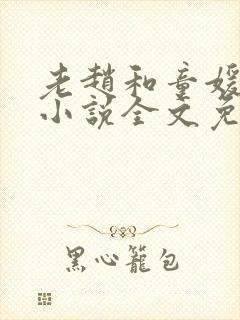 老趙和童媛
小說全文免
黑心籠包